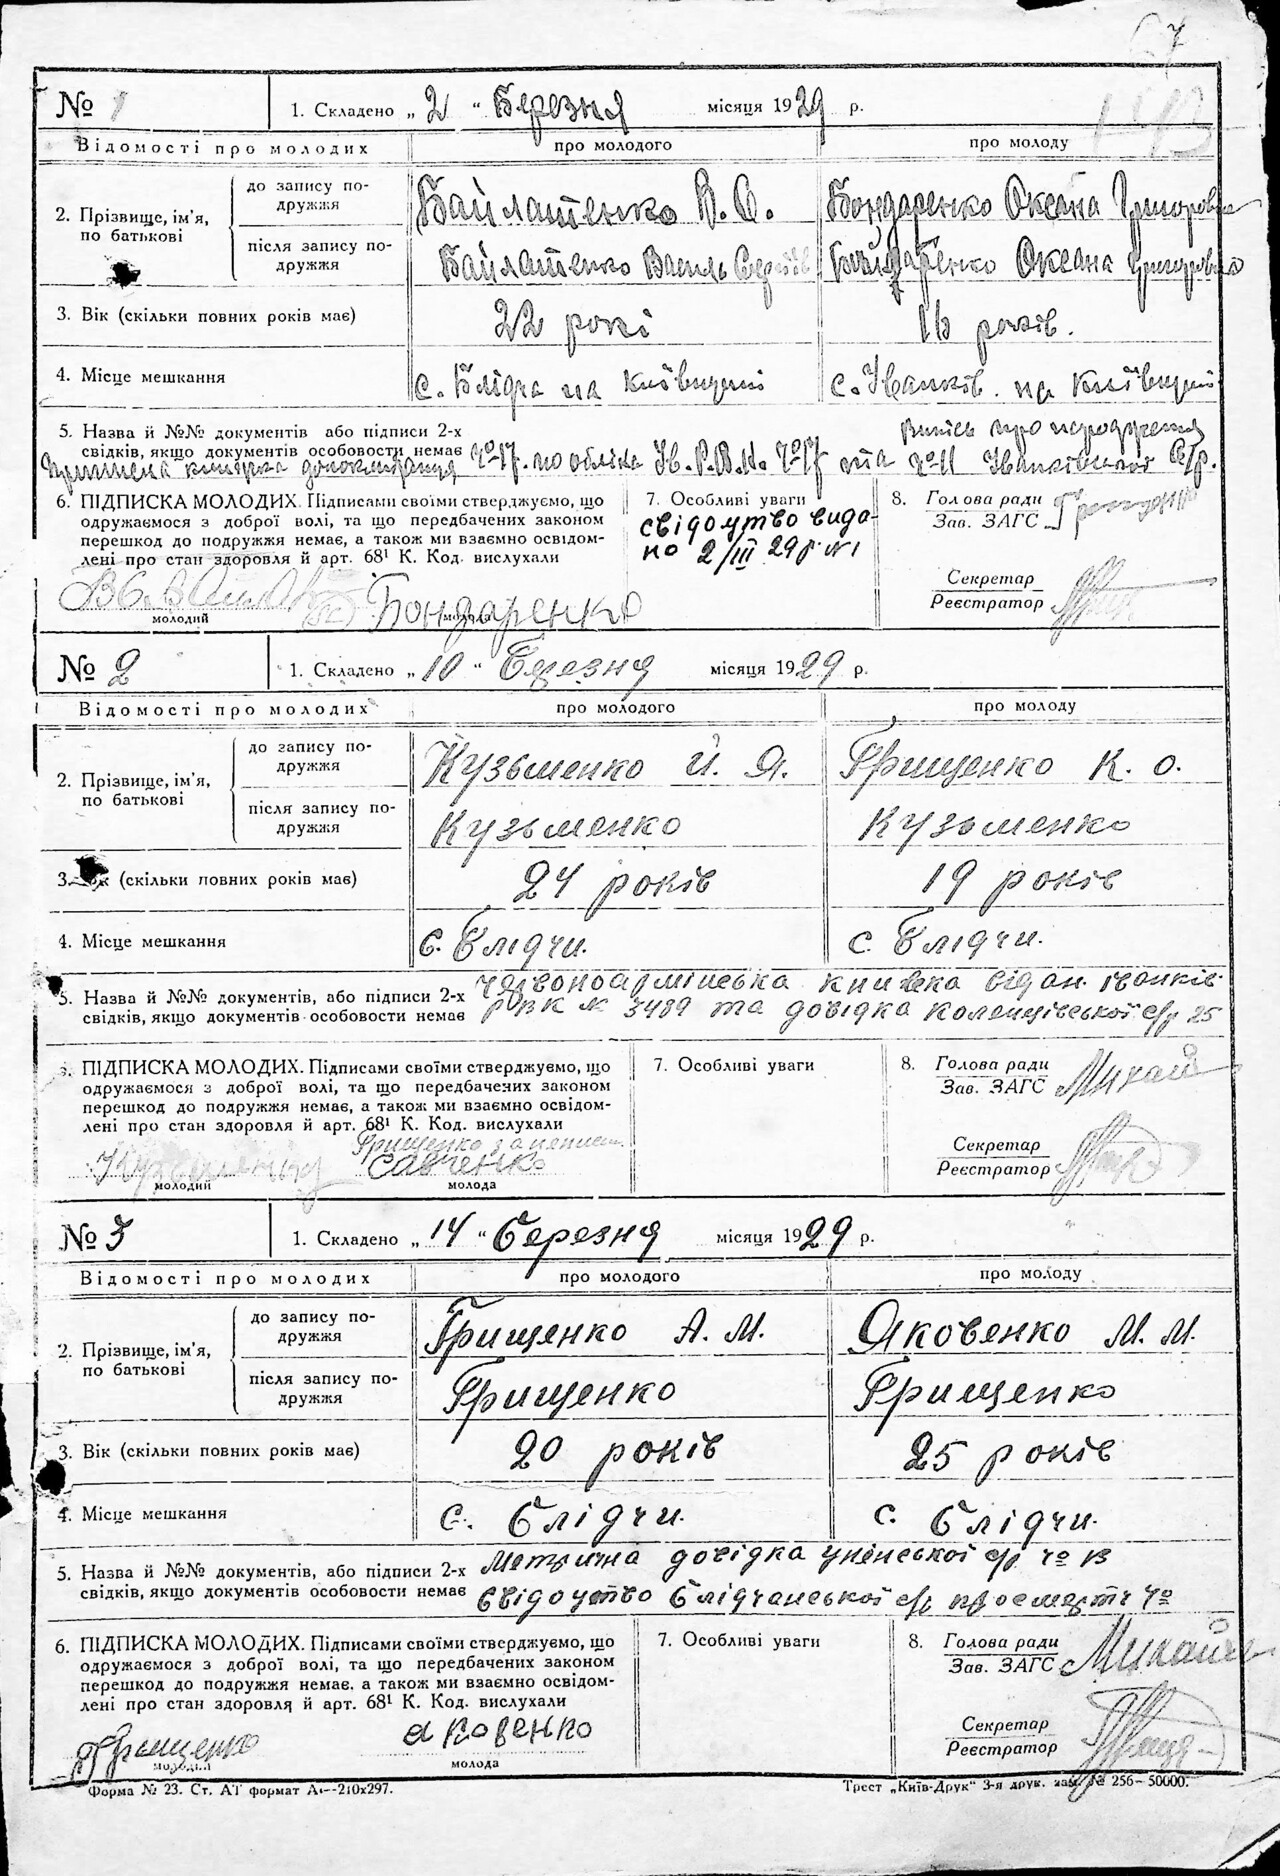 № 1
1. Складено „ 2 “ Березня місяця 1929 р.
Відомості про молодих про молодого про молоду
2. Прізвище, ім'я, по батькові
до запису подружжя Байлатенко В. С. Бондаренко Оксана Григоровна
після запису подружжя Байлатенко Василь Оксана
3. Вік (скільки повних років має) 22 рокі 16 років.
4. Місце мешкання с. на Київщині с. Іванків на Київщині
5. Назва й №№ документів або підписи 2-х Випись про народження
свідків, якщо документів особовости немає
Чо 17. по обліка Ів. Р.В.К. Чо 17 та Чо 11 Іванківської С/р.
6. ПІДПИСКА МОЛОДИХ. Підписами своїми стверджуємо, що
одружаємося з доброї волі, та що передбачених законом
перешкод до подружжя немає, а також ми взаємно освідом-
лені про стан здоровля й арт. 68¹ К. Код. вислухали
7. Особливі уваги
свідоцтво вида-
но 2/III 29 р. №1
8. Голова ради
Зав. ЗАГС
Секретар
Реєстратор
Бондаренко
молодий молода
№ 2
1. Складено „ 10 “ Березня місяця 1929 р.
Відомості про молодих про молодого про молоду
2. Прізвище, ім'я, по батькові
до запису подружжя Кузьменко Й. Я. Грищенко К. О.
після запису подружжя Кузьменко Кузьменко
3. Вік (скільки повних років має) 24 років 19 років
4. Місце мешкання с. Блідчи. с. Блідчи.
5. Назва й №№ документів, або підписи 2-х Червоноармійська книжка видан. Іванків
свідків, якщо документів особовости немає РВК № 3489 та довідка Коленцівської с/р 25
6. ПІДПИСКА МОЛОДИХ. Підписами своїми стверджуємо, що
одружаємося з доброї волі, та що передбачених законом
перешкод до подружжя немає, а також ми взаємно освідом-
лені про стан здоровля й арт. 68¹ К. Код. вислухали
7. Особливі уваги
8. Голова ради
Зав. ЗАГС
Секретар
Реєстратор
Грищенко
Кузьменко Савченко
молодий молода
№ 3
1. Складено „ 14 “ Березня місяця 1929 р.
Відомості про молодих про молодого про молоду
2. Прізвище, ім'я, по батькові
до запису подружжя Грищенко А. М. Яковенко М. М.
після запису подружжя Грищенко Грищенко
3. Вік (скільки повних років має) 20 років 25 років
4. Місце мешкання с. Блідчи. с. Блідчи.
5. Назва й №№ документів, або підписи 2-х довідка с/р Чо 13
свідків, якщо документів особовости немає свідоцтво Блідчанської с/р про смерть Чо
6. ПІДПИСКА МОЛОДИХ. Підписами своїми стверджуємо, що
одружаємося з доброї волі, та що передбачених законом
перешкод до подружжя немає, а також ми взаємно освідом-
лені про стан здоровля й арт. 68¹ К. Код. вислухали
7. Особливі уваги
8. Голова ради
Зав. ЗАГС
Секретар
Реєстратор
Грищенко Яковенко
молодий молода
Форма № 23. Ст. АТ формат А₄—210x297.
Трест „Київ-Друк“ 3-я друк. зам. № 256—50000.